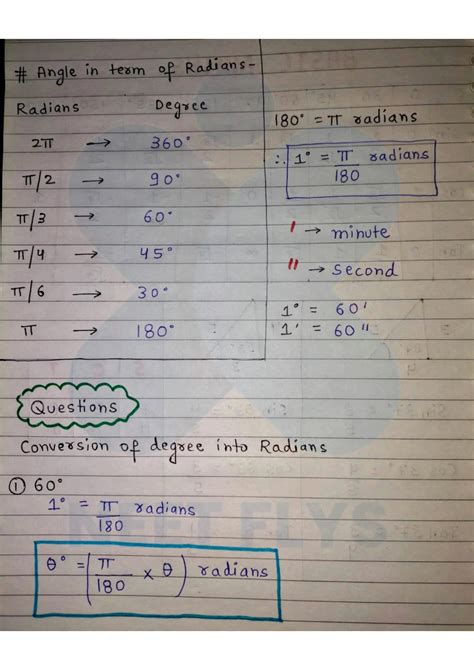 # Angle in term of Radians-
Radians Degree
2π → 360°
π/2 → 90°
π/3 → 60°
π/4 → 45°
π/6 → 30°
π → 180°
180° = π radians
∴ 1° = π/180 radians
' → minute
" → Second
1° = 60'
1' = 60"
Questions
Conversion of degree into Radians
① 60°
1° = π/180 radians
θ° = (π/180 × θ) radians
NEET FLYS